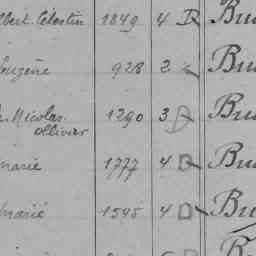 lbert Célestin 1849 4 D Bu
Eugène 928 2 Bu
Nicolas 1290 3 D Bu
Ollivier
marie 1777 4 D Bu
marié 1545 4 D Bu